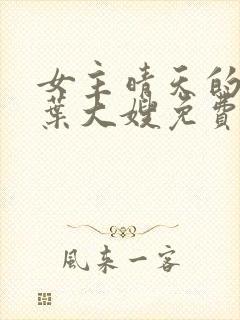 女主晴天的
葉大嫂免費
風來一客